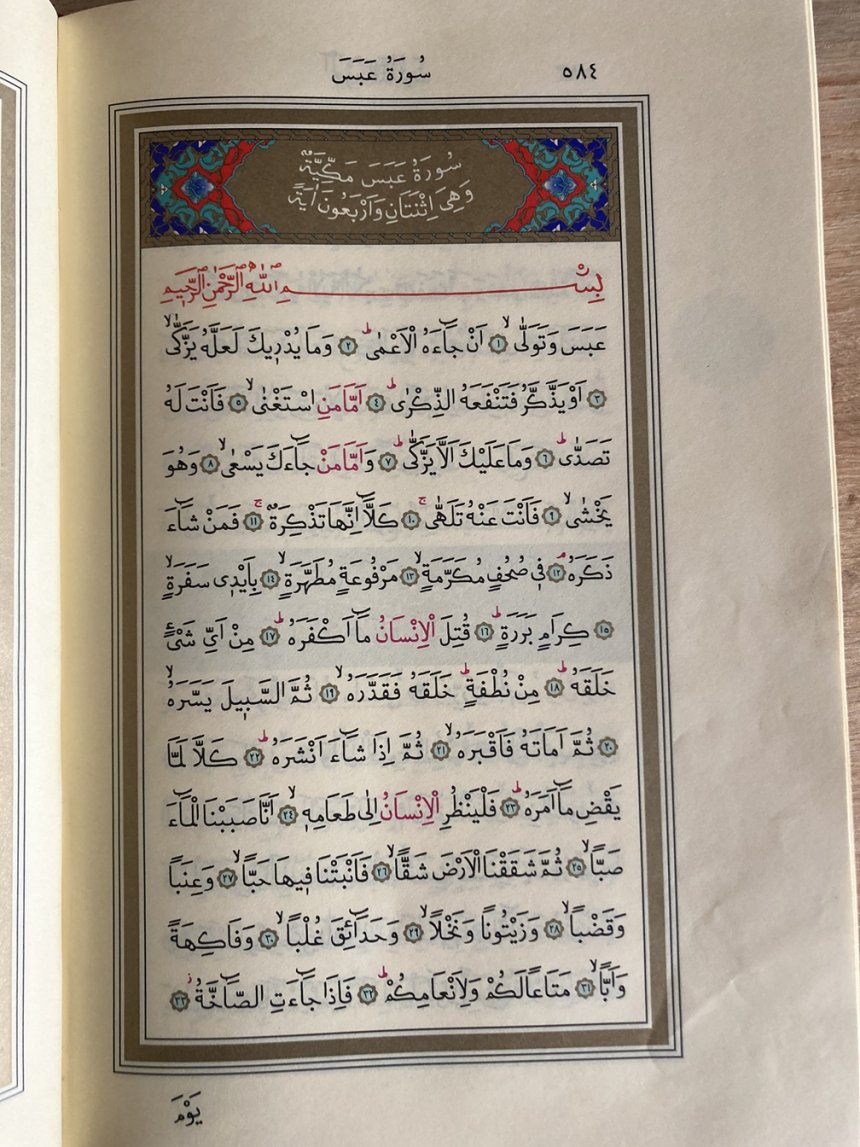 سُورَةُ عَبَسَ ٥٨٤
سُورَةُ عَبَسَ مَكِّيَّةٌ
وَهِيَ اِثْنَتَانِ وَاَرْبَعُونَ اٰيَةً
بِسْمِ اللّٰهِ الرَّحْمٰنِ الرَّحٖيمِ
عَبَسَ وَتَوَلّٰىۙ ﴿١﴾ اَنْ جَٓاءَهُ الْاَعْمٰىۜ ﴿٢﴾ وَمَا يُدْرٖيكَ لَعَلَّهُ يَزَّكّٰىۙ
﴿٣﴾ اَوْ يَذَّكَّرُ فَتَنْفَعَهُ الذِّكْرٰىۜ ﴿٤﴾ اَمَّا مَنِ اسْتَغْنٰىۙ ﴿٥﴾ فَاَنْتَ لَهُ
تَصَدّٰىۜ ﴿٦﴾ وَمَا عَلَيْكَ اَلَّا يَزَّكّٰىۜ ﴿٧﴾ وَاَمَّا مَنْ جَٓاءَكَ يَسْعٰىۙ ﴿٨﴾ وَهُوَ
يَخْشٰىۙ ﴿٩﴾ فَاَنْتَ عَنْهُ تَلَهّٰىۚ ﴿١٠﴾ كَلَّٓا اِنَّهَا تَذْكِرَةٌۚ ﴿١١﴾ فَمَنْ شَٓاءَ
ذَكَرَهُۢ ﴿١٢﴾ فٖي صُحُفٍ مُكَرَّمَةٍۙ ﴿١٣﴾ مَرْفُوعَةٍ مُطَهَّرَةٍۙ ﴿١٤﴾ بِاَيْدٖي سَفَرَةٍۙ
﴿١٥﴾ كِرَامٍ بَرَرَةٍۜ ﴿١٦﴾ قُتِلَ الْاِنْسَانُ مَٓا اَكْفَرَهُۜ ﴿١٧﴾ مِنْ اَيِّ شَيْءٍ
خَلَقَهُۜ ﴿١٨﴾ مِنْ نُطْفَةٍۜ خَلَقَهُ فَقَدَّرَهُۙ ﴿١٩﴾ ثُمَّ السَّبٖيلَ يَسَّرَهُۙ
﴿٢٠﴾ ثُمَّ اَمَاتَهُ فَاَقْبَرَهُۙ ﴿٢١﴾ ثُمَّ اِذَا شَٓاءَ اَنْشَرَهُۜ ﴿٢٢﴾ كَلَّا لَمَّا
يَقْضِ مَٓا اَمَرَهُۜ ﴿٢٣﴾ فَلْيَنْظُرِ الْاِنْسَانُ اِلٰى طَعَامِهٖۙ ﴿٢٤﴾ اَنَّا صَبَبْنَا الْمَٓاءَ
صَبًّاۙ ﴿٢٥﴾ ثُمَّ شَقَقْنَا الْاَرْضَ شَقًّاۙ ﴿٢٦﴾ فَاَنْبَتْنَا فٖيهَا حَبًّاۙ ﴿٢٧﴾ وَعِنَبًا
وَقَضْبًاۙ ﴿٢٨﴾ وَزَيْتُونًا وَنَخْلًاۙ ﴿٢٩﴾ وَحَدَٓائِقَ غُلْبًاۙ ﴿٣٠﴾ وَفَاكِهَةً
وَاَبًّاۙ ﴿٣١﴾ مَتَاعًا لَكُمْ وَلِاَنْعَامِكُمْۜ ﴿٣٢﴾ فَاِذَا جَٓاءَتِ الصَّٓاخَّةُۘ ﴿٣٣﴾
يَوْمَ